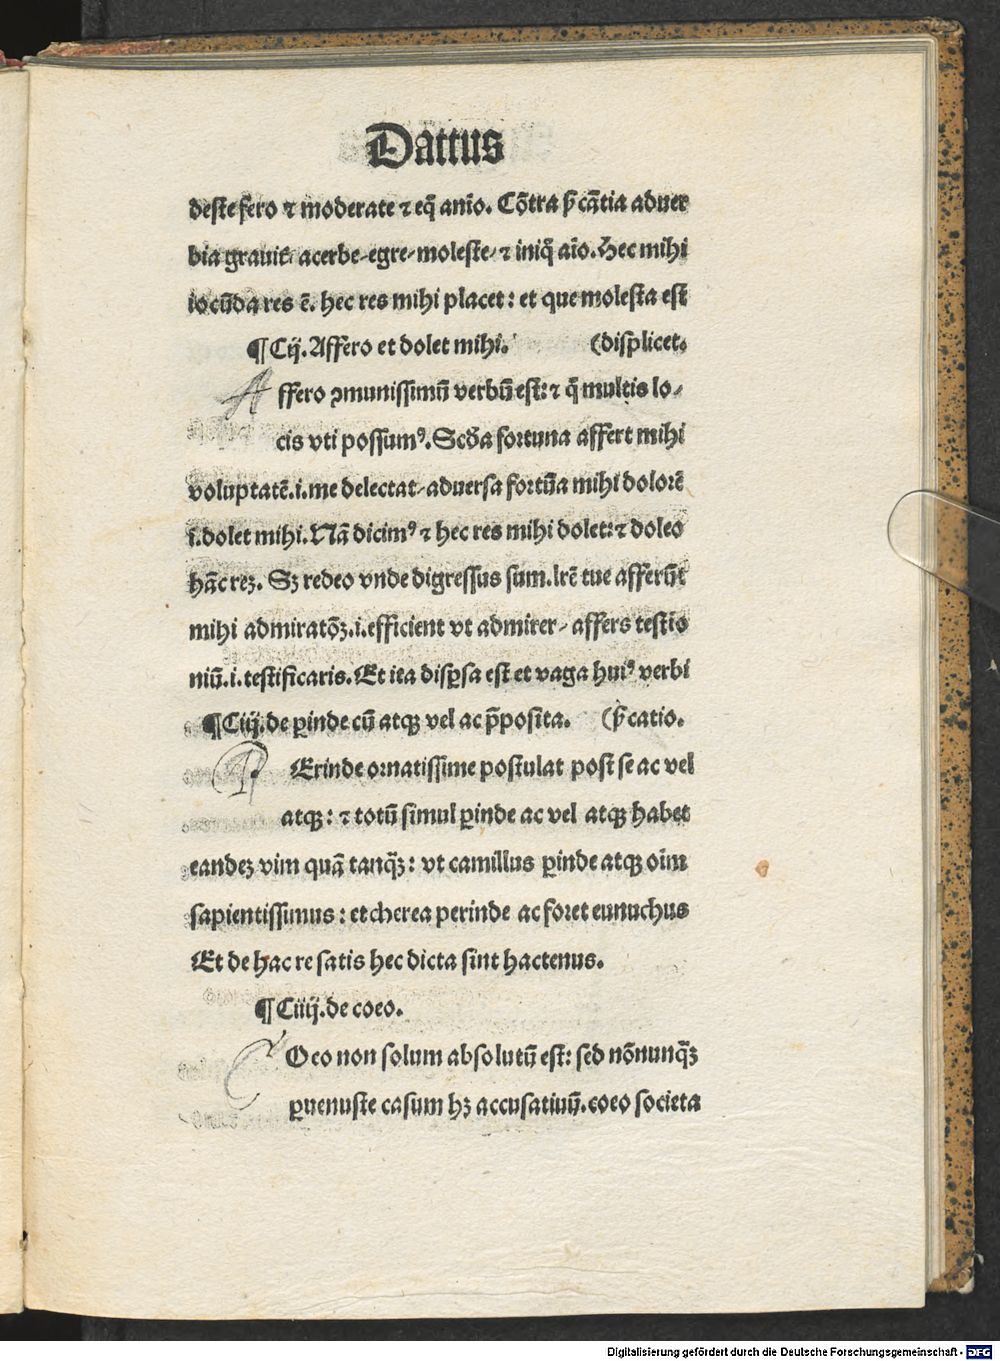 Dattus
deste fero ⁊ moderate ⁊ eq̄ anīo. Cōtra p̄cātia aduer
bia grauit᷑ acerbe egre moleste ⁊ iniq̄ aīo. Hec mihi
iocūda res ē. hec res mihi placet: et que molesta est
¶ Cij. Affero et dolet mihi. (displicet.
Affero ꝯmunissimū verbū est: ⁊ q̄ multis lo⸗
cis vti possumꝰ. Scd̄a fortuna affert mihi
voluptatē. i. me delectat aduersa fortūa mihi dolorē
i. dolet mihi. Nā dicimꝰ ⁊ hec res mihi dolet: ⁊ doleo
hāc reꝫ. Sꝫ redeo vnde digressus sum. lrē tue afferūt
mihi admiratōꝫ. i. efficient vt admirer affers testio
niū. i. testificaris. Et ita disꝑsa est et vaga huiꝰ verbi
¶ Ciij. de ꝑinde cū atqꝫ vel ac p̄posita. (p̄catio.
PErinde ornatissime postulat post se ac vel
atqꝫ: ⁊ totū simul ꝑinde ac vel atqꝫ habet
eandeꝫ vim quā tanq̄ꝫ: vt camillus ꝑinde atqꝫ oīm
sapientissimus: et cherea perinde ac foret eunuchus
Et de hac re satis hec dicta sint hactenus.
¶ Ciiij. de coeo.
COeo non solum absolutū est: sed nōnunq̄ꝫ
ꝑuenuste casum hꝫ accusatiuū. coeo societa
Digitalisierung gefördert durch die Deutsche Forschungsgemeinschaft - DFG